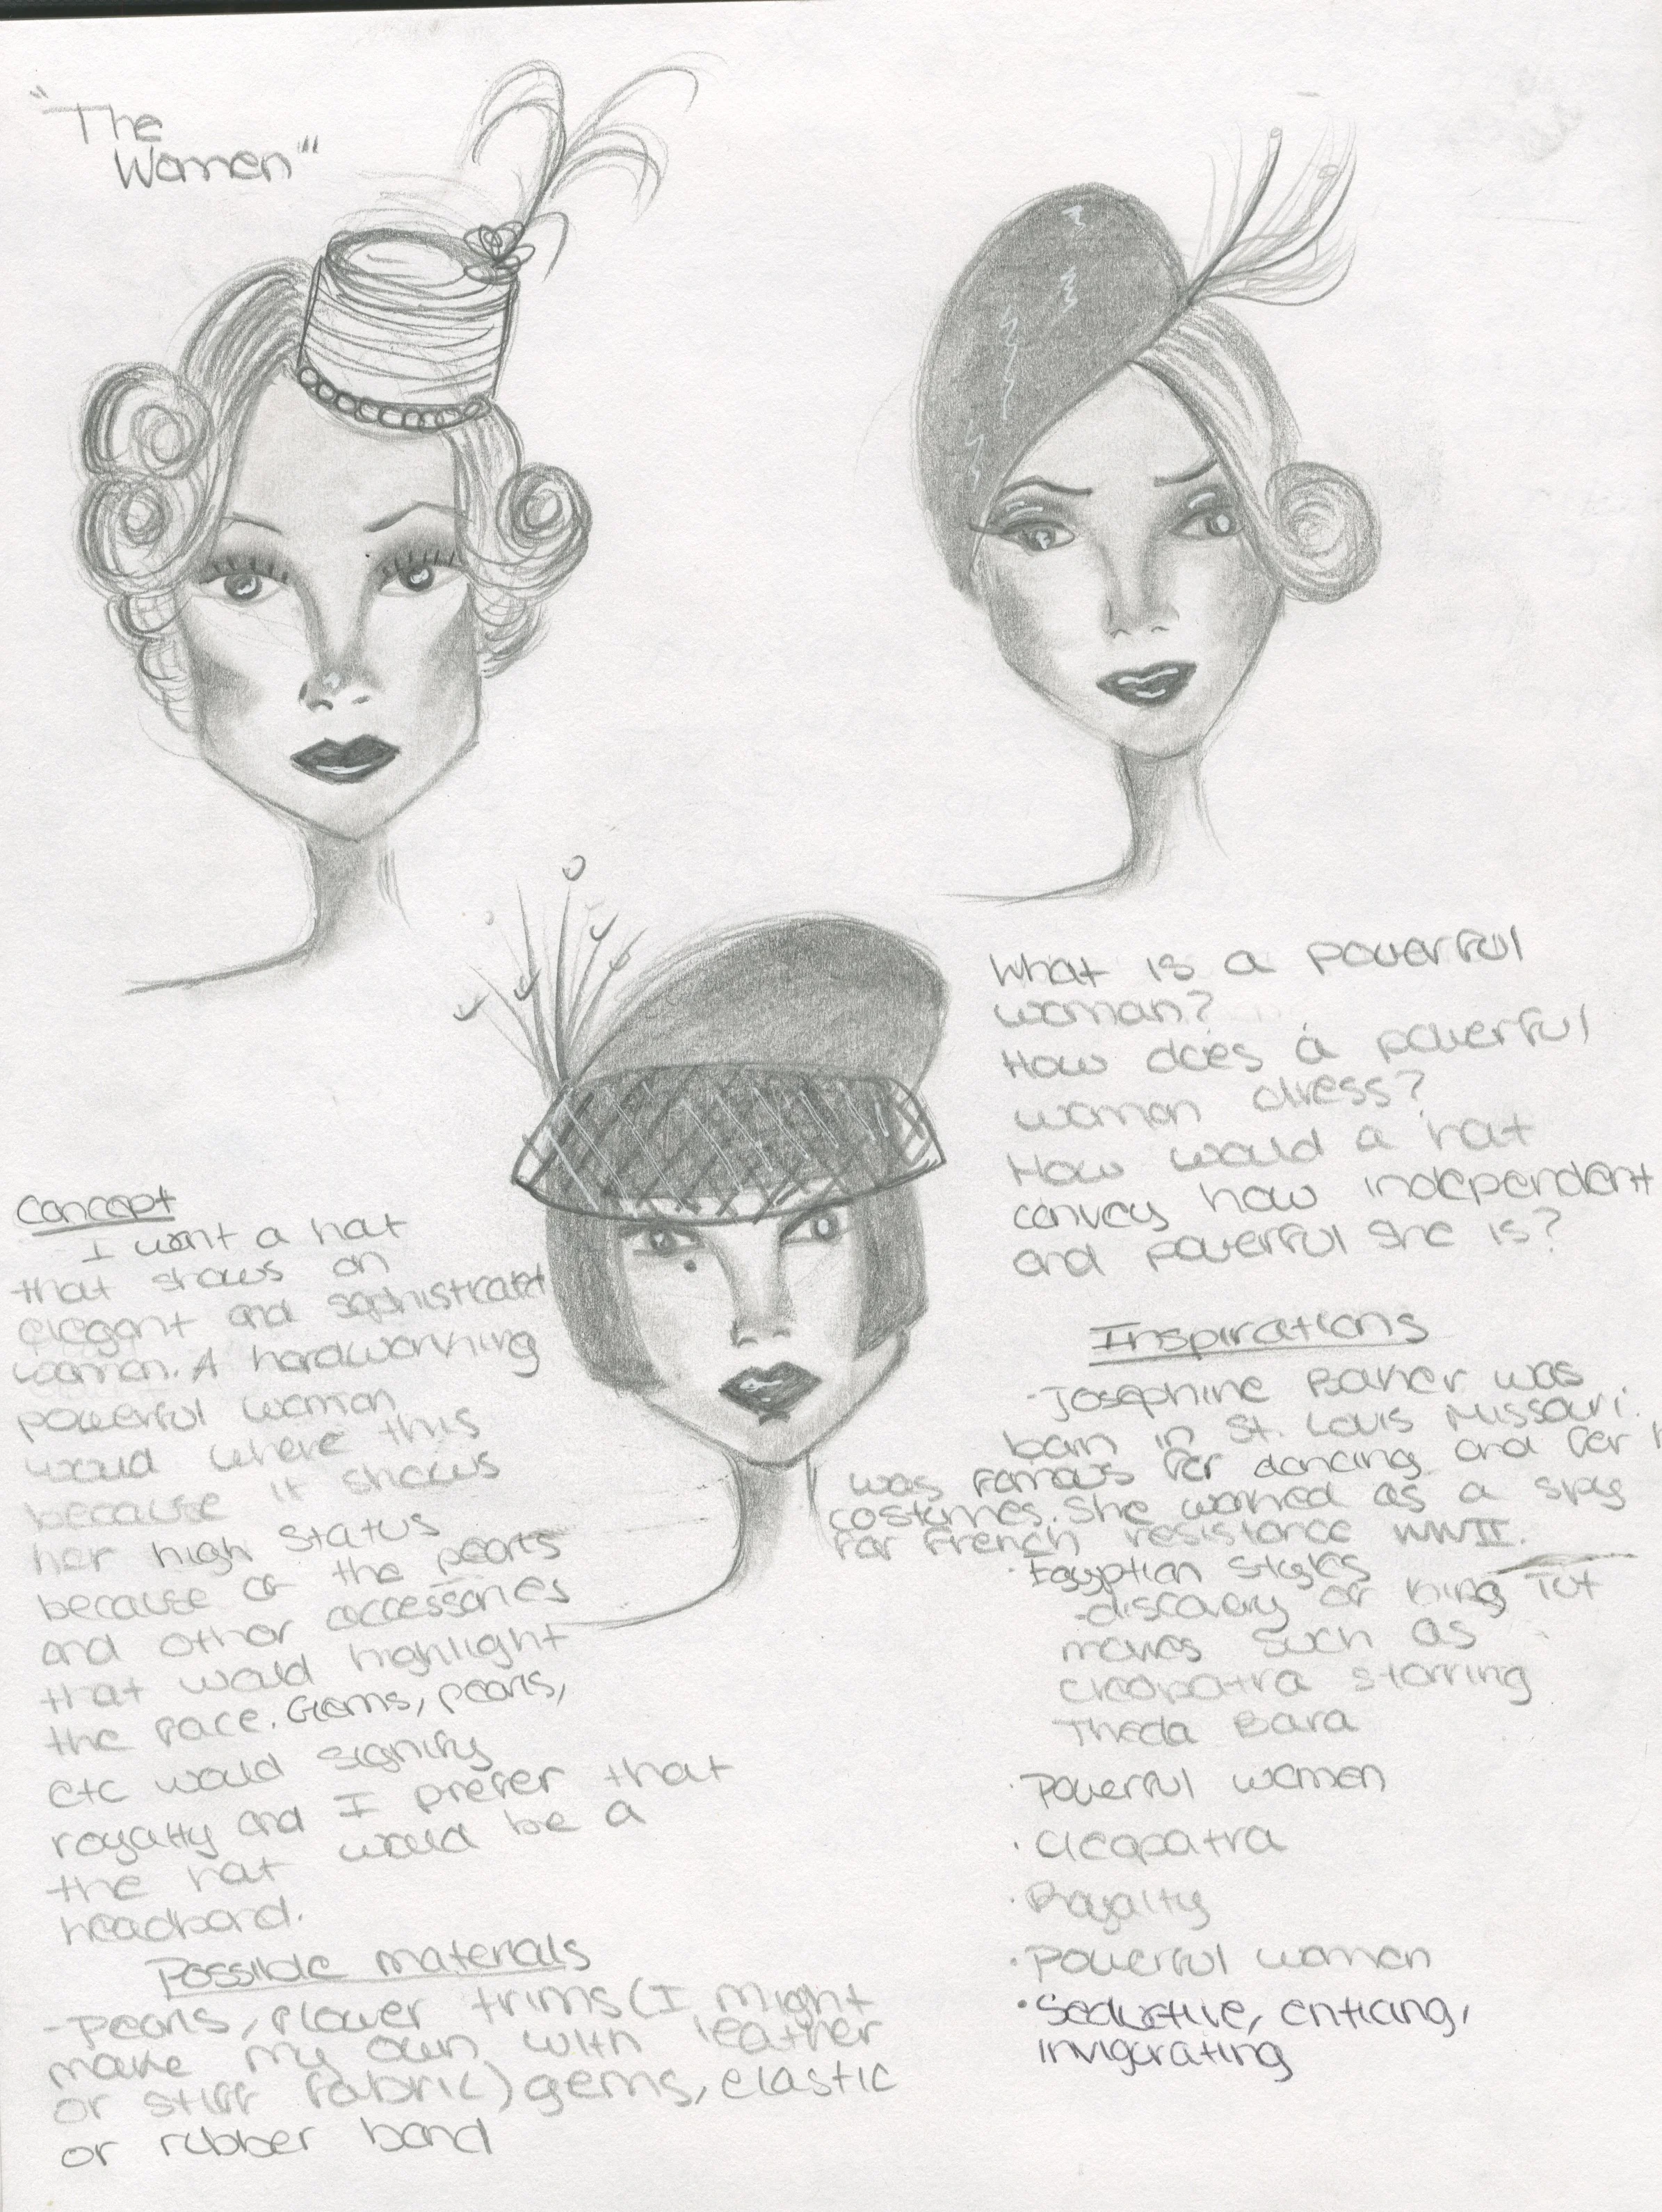 "The
Women"
What is a powerful
woman?
How does a powerful
woman dress?
How would a hat
convey how independent
and powerful she is?
Concept
I want a hat
that shows an
elegant and sophistrated
woman. A hardworking
powerful woman
would where this
because it shows
her high status
because of the pearls
and other accessories
that would highlight
the face. Gems, pearls,
etc would signify
royalty and I prefer that
the hat would be a
headband.
Possible materials
-Pearls, flower trims (I might
make my own with leather
or stiff fabric) gems, elastic
or rubber band
Inspirations
·Josephine Baker was
born in St. Louis Missouri.
was famous for dancing and for h
costumes. She worked as a spy
for French resistance WWII.
·Egyptian styles
-discovery of King Tut
movies such as
Cleopatra starring
Theda Bara
·Powerful women
·Cleopatra
·Royalty
·Powerful women
·Seductive, enticing,
invigorating